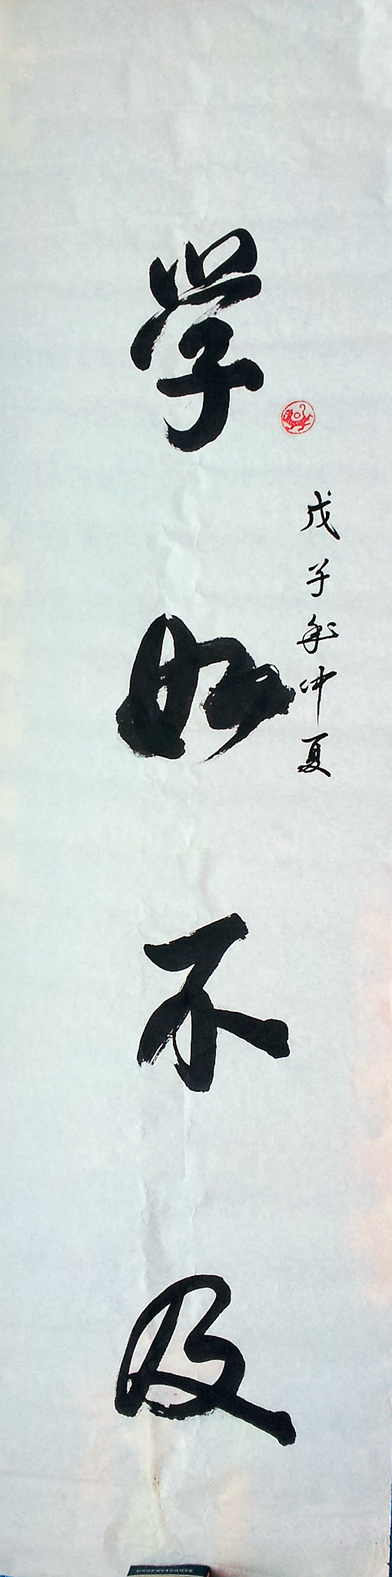 戊子年仲夏
学如不及